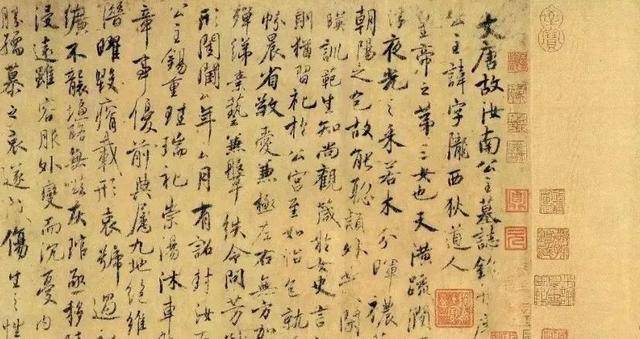 大唐故汝南公主墓誌銘并序
公主諱字隴西狄道人
皇帝之第三女也天潢疏潤
浮夜光之采若木分暉穠
朝陽之色故能聰穎外發閑
暎訓範生知尚觀箴於女史言
則猶習礼於公宮至如怡色就
帉晨省敬愛兼極左右無方加
殫綈素藝兼鞶紩令問芳
形閨閫年月有詔封汝南
公主錫重珪瑞礼崇湯沐車
章事優前典屬九地絕維
潛曜毀瘠載形哀號過
纊不襲塩酪無嗞灰琯亟移
浸遠雖容服外變而沉憂內
勝孺慕之哀遂成傷生之性